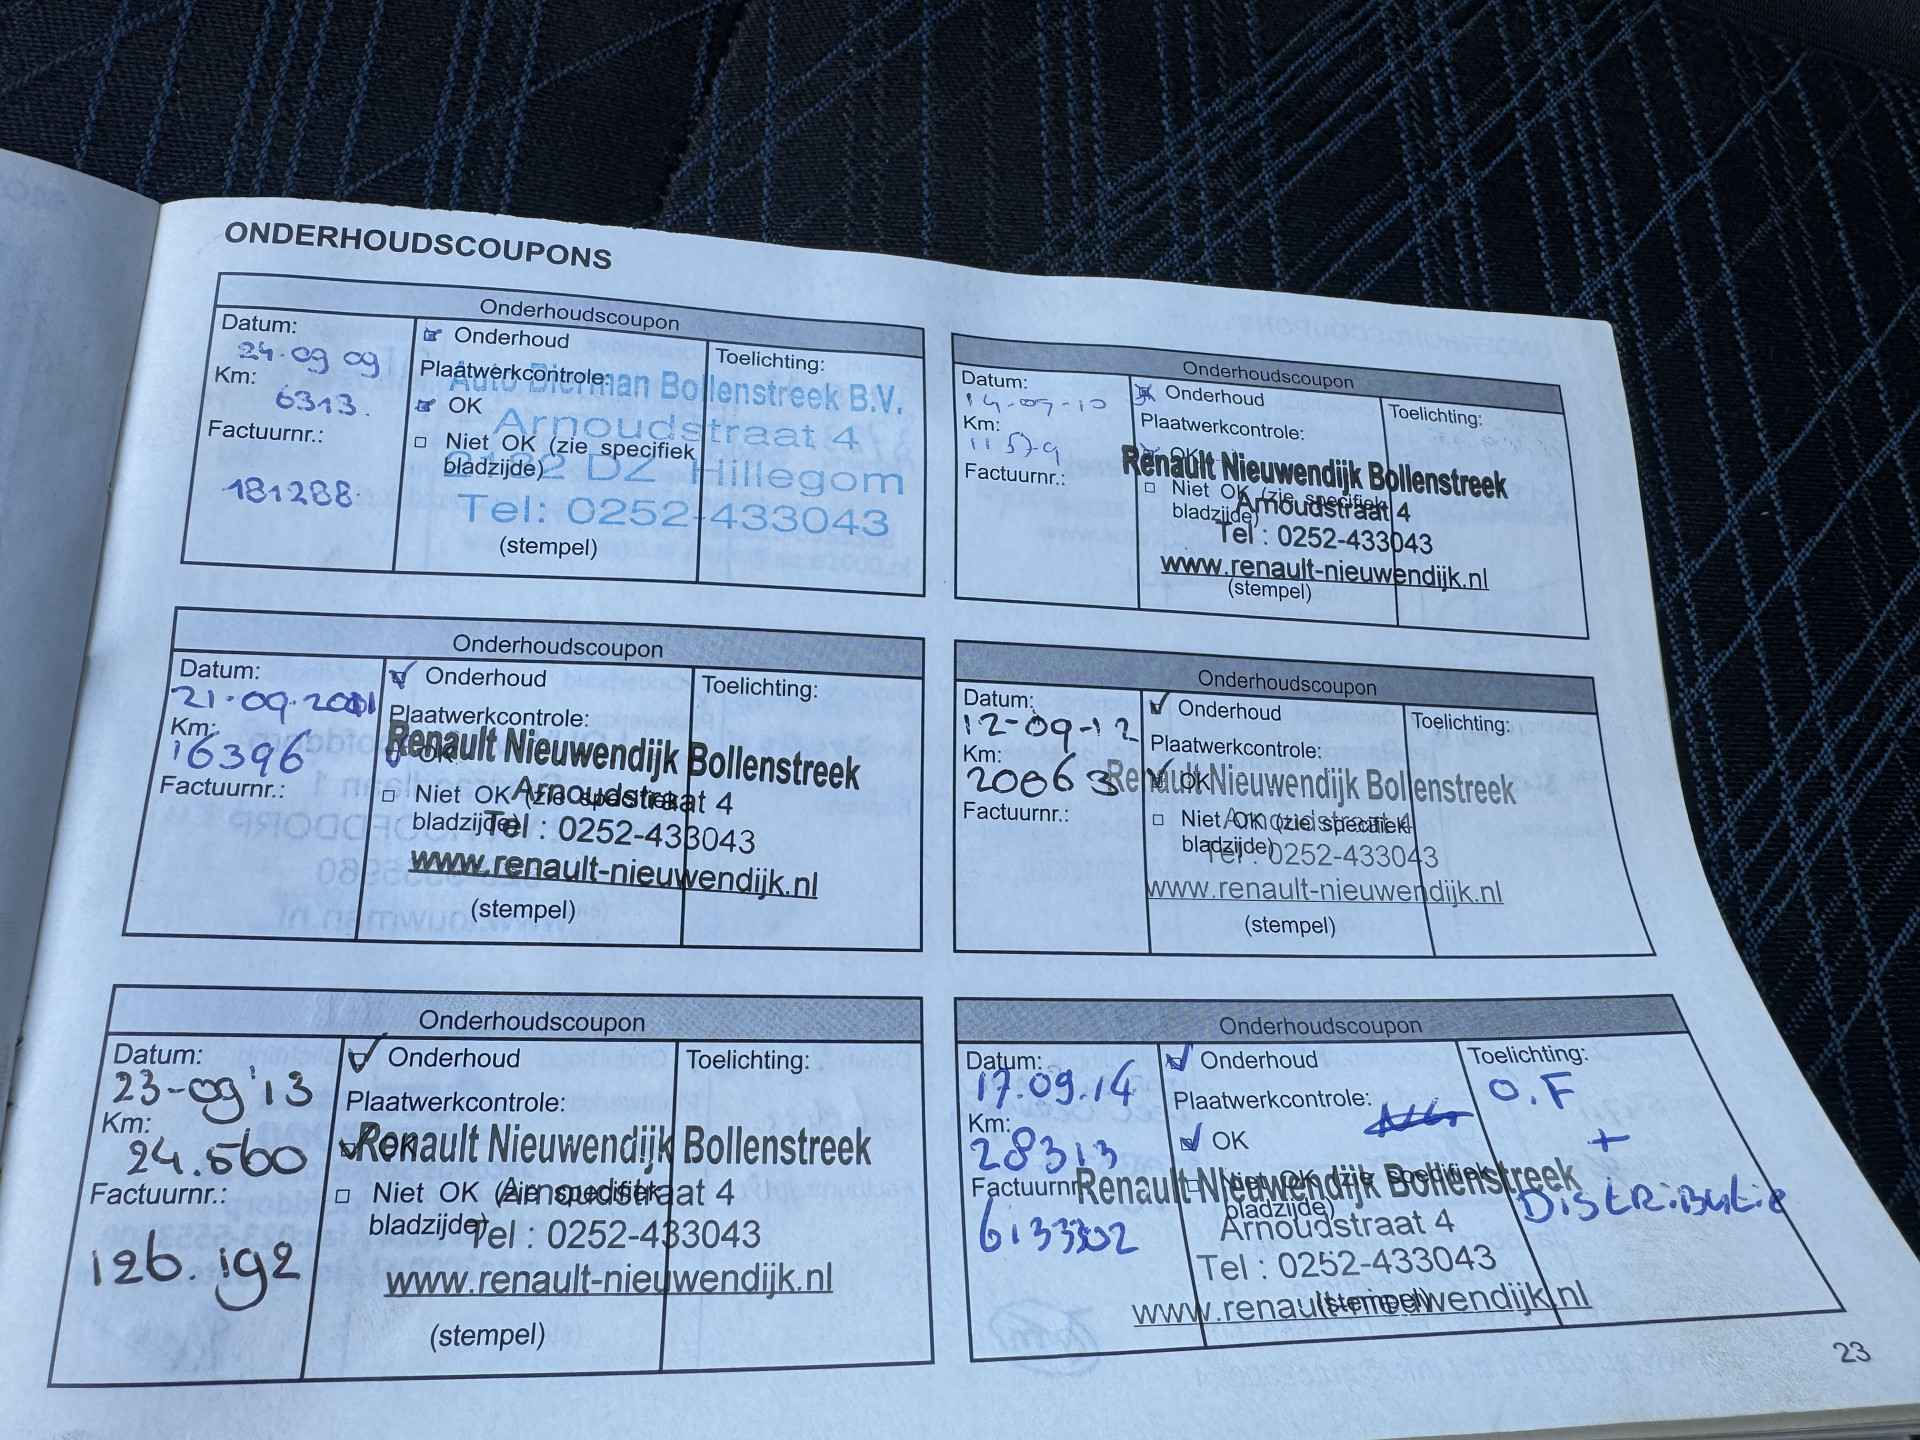 ONDERHOUDSCOUPONS
Onderhoudscoupon
Datum:
24-09 09
Km:
6313.
Factuurnr.:
181288.
Onderhoud
Plaatwerkcontrole:
OK
Niet OK (zie specifiek
bladzijde)
Toelichting:
Auto Bierman Bollenstreek B.V.
Arnoudstraat 4
2182 DZ Hillegom
Tel: 0252-433043
(stempel)
Onderhoudscoupon
Datum:
14-09-10
Km:
11579
Factuurnr.:
Onderhoud
Plaatwerkcontrole:
OK
Niet OK (zie specifiek
bladzijde)
Toelichting:
Renault Nieuwendijk Bollenstreek
Arnoudstraat 4
Tel : 0252-433043
www.renault-nieuwendijk.nl
(stempel)
Onderhoudscoupon
Datum:
21-09-2011
Km:
16396
Factuurnr.:
Onderhoud
Plaatwerkcontrole:
OK
Niet OK (zie specifiek
bladzijde)
Toelichting:
Renault Nieuwendijk Bollenstreek
Arnoudstraat 4
Tel : 0252-433043
www.renault-nieuwendijk.nl
(stempel)
Onderhoudscoupon
Datum:
12-09-12
Km:
20863
Factuurnr.:
Onderhoud
Plaatwerkcontrole:
OK
Niet OK (zie specifiek
bladzijde)
Toelichting:
Renault Nieuwendijk Bollenstreek
Arnoudstraat 4
Tel : 0252-433043
www.renault-nieuwendijk.nl
(stempel)
Onderhoudscoupon
Datum:
23-09'13
Km:
24.560
Factuurnr.:
126.192
Onderhoud
Plaatwerkcontrole:
OK
Niet OK (zie specifiek
bladzijde)
Toelichting:
Renault Nieuwendijk Bollenstreek
Arnoudstraat 4
Tel : 0252-433043
www.renault-nieuwendijk.nl
(stempel)
Onderhoudscoupon
Datum:
17.09.14
Km:
28313
Factuurnr.:
Onderhoud
Plaatwerkcontrole:
OK
Niet OK (zie specifiek
bladzijde)
Toelichting:
O.F
+
Distributie
Renault Nieuwendijk Bollenstreek
Arnoudstraat 4
Tel : 0252-433043
www.renault-nieuwendijk.nl
(stempel)
23